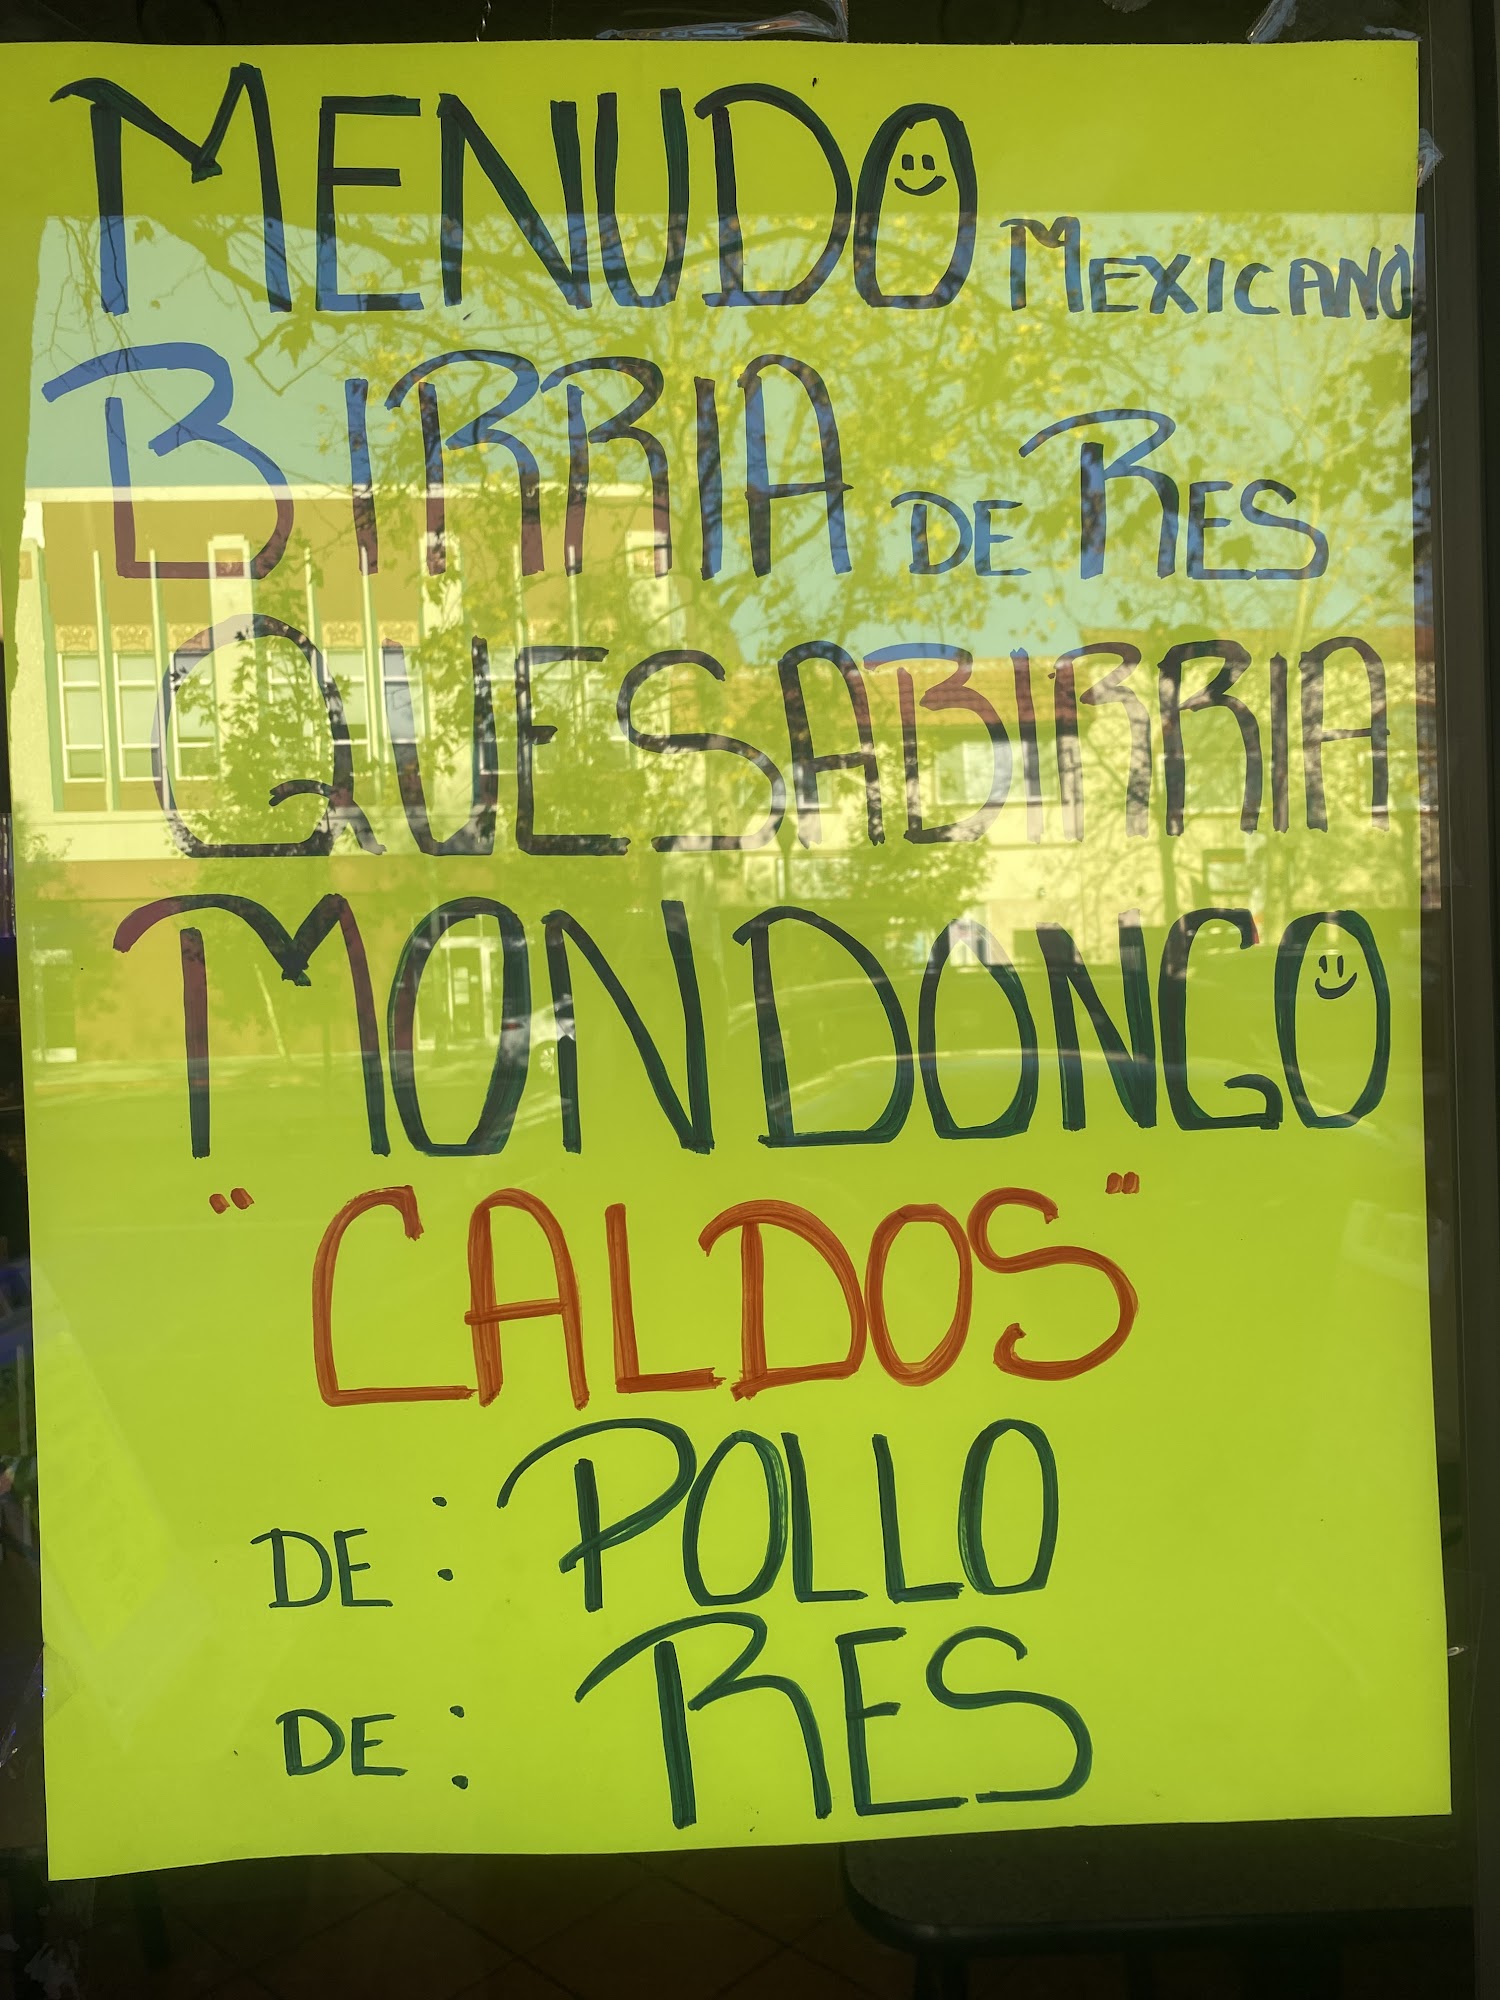 MENUDO MEXICANO
BIRRIA DE RES
QUESABIRRIA
MONDONGO
"CALDOS"
DE: POLLO
DE: RES